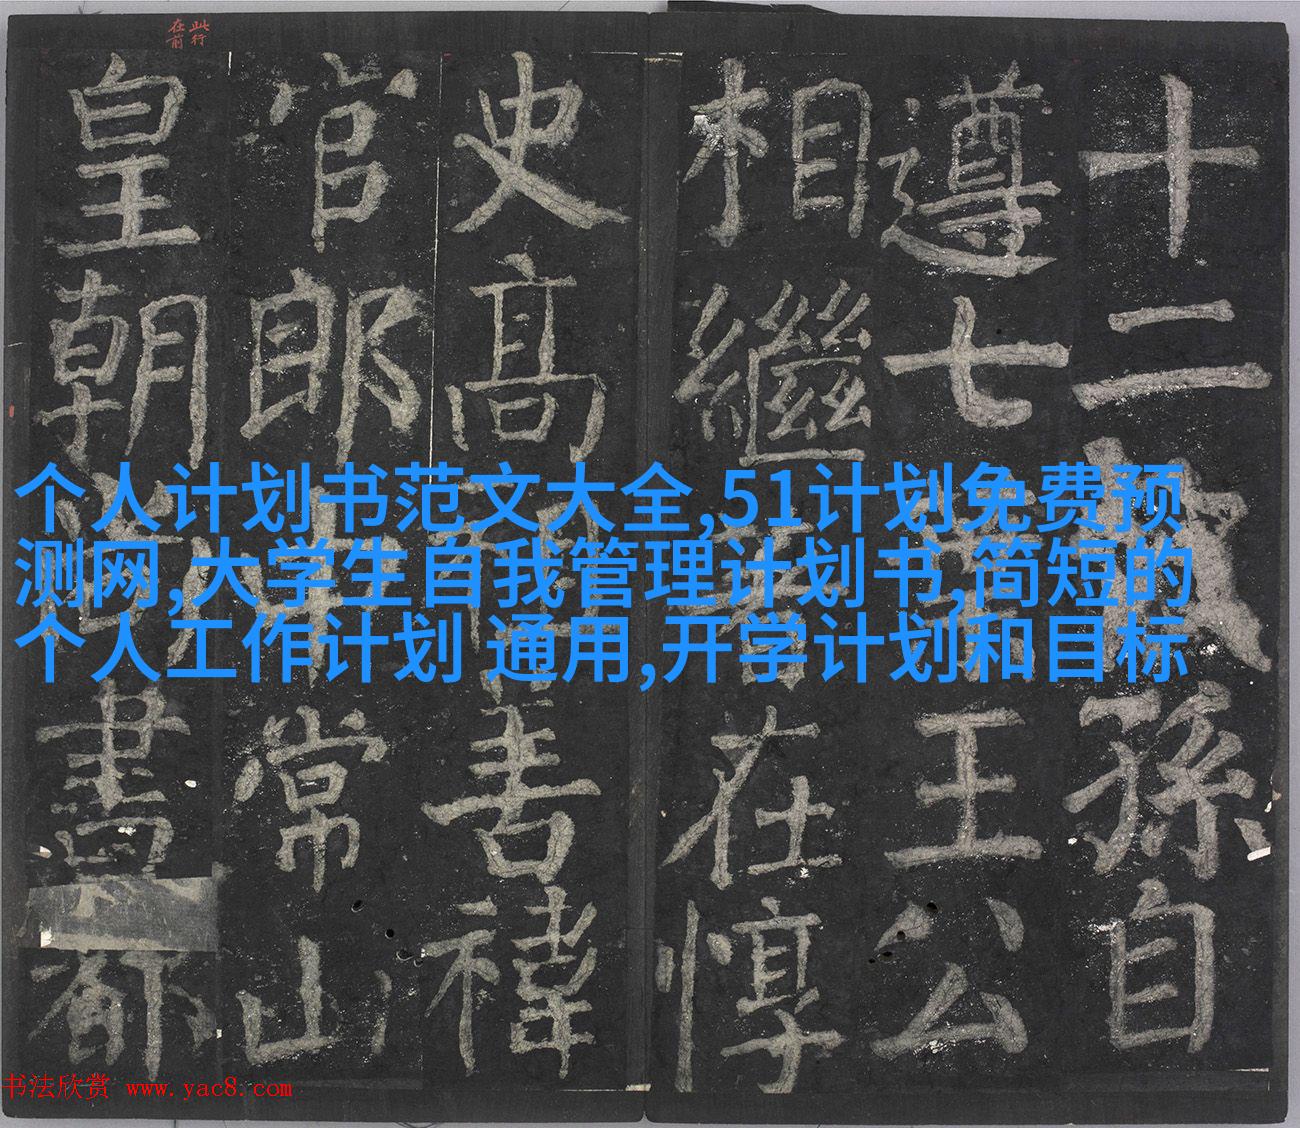 此行
在前
十二孫自
遵七王公
相繼在惇
史高善禕
官郎常山
皇朝書都
个人计划书范文大全,51计划免费预
测网,大学生自我管理计划书,简短的
个人工作计划 通用,开学计划和目标
书法欣赏 www.yac8.com